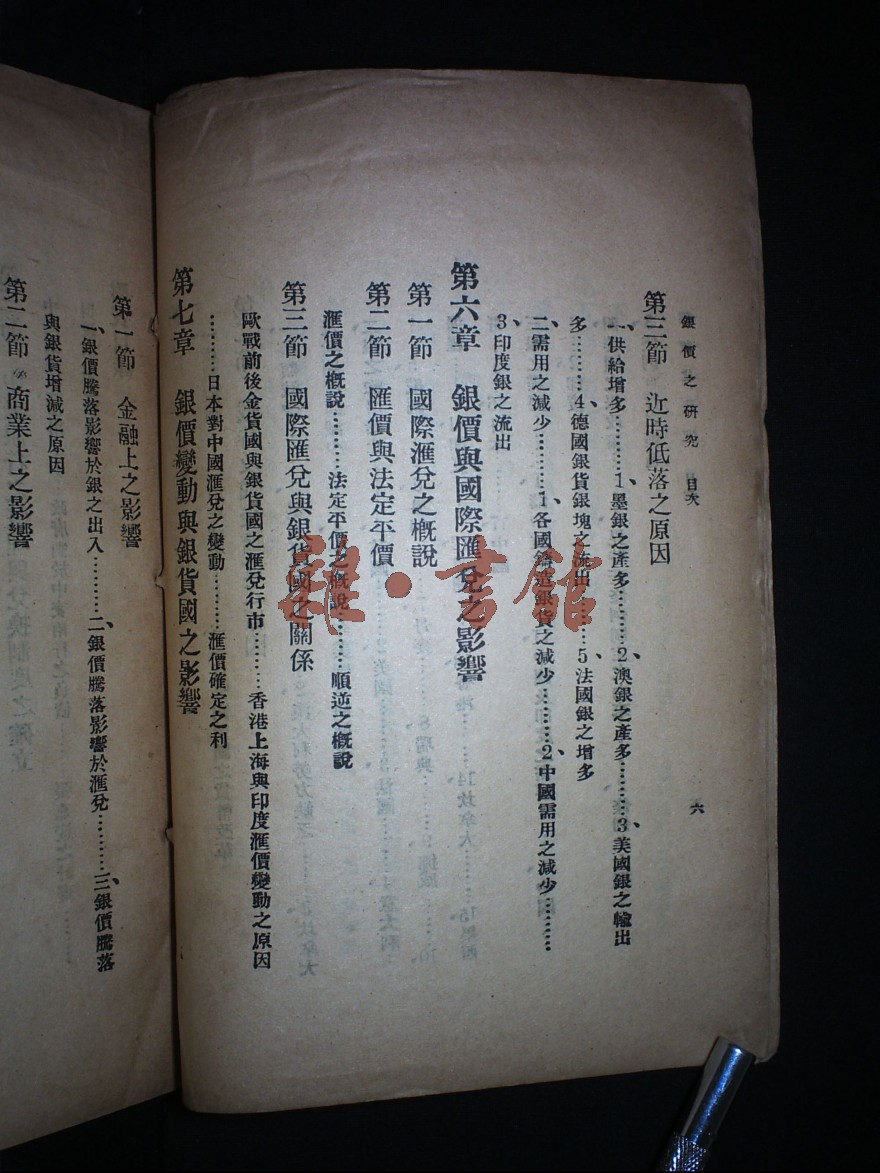 銀價之研究 目次
六
第三節 近時低落之原因
一、供給增多………1、墨銀之產多………2、澳銀之產多………3、美國銀之輸出
多………4、德國銀貨銀塊之流出………5、法國銀之增多
二、需用之減少………1、各國鑄造銀貨之減少………2、中國需用之減少………
3、印度銀之流出
第六章 銀價與國際匯兌之影響
第一節 國際滙兌之概說
第二節 匯價與法定平價
滙價之概說………法定平價之概說………順逆之概說
第三節 國際匯兌與銀貨國之關係
歐戰前後金貨國與銀貨國之滙兌行市………香港上海與印度滙價變動之原因
………日本對中國滙兌之變動………滙價確定之利
第七章 銀價變動與銀貨國之影響
第一節 金融上之影響
一、銀價騰落影響於銀之出入………二、銀價騰落影響於滙兌………三、銀價騰落
與銀貨增減之原因
第二節 商業上之影響
雜·書館